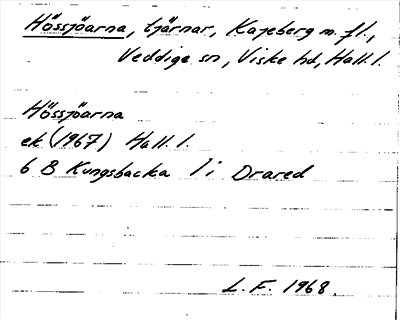 Hössjöarna, tjärnar, Kajeberg m. fl.,
Veddige sn, Viske hd, Hall. l.
Hössjöarna
ek (1967) Hall. l.
6 B Kungsbacka 1 i Drared
L. F. 1968.